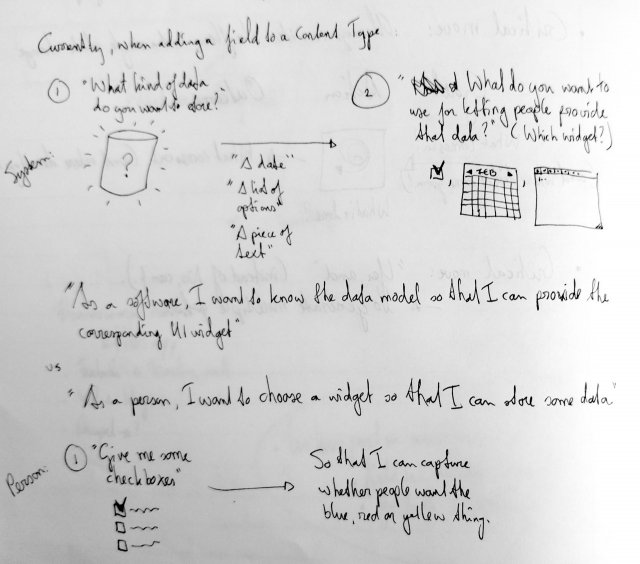 Currently, when adding a field to a Content Type
① "What kind of data
do you want to store?"
② " What do you want to
use for letting people provide
that data?" (Which widget?)
System:
?
"A date"
"A list of
options"
"A piece of
text"
FEB
"As a software, I want to know the data model so that I can provide the
corresponding UI widget"
vs
"As a person, I want to choose a widget so that I can store some data"
Person:
① "Give me some
checkboxes"
So that I can capture
whether people want the
blue, red or yellow thing.